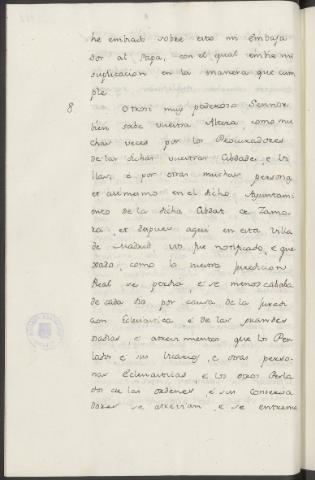 he embiado sobre esto mi embaja
dor al Papa, con el qual embie mi
suplicacion en la manera que cum
ple.
8 Otrosi muy poderoso Sennor
bien sabe vuestra Alteza como mu
chas veces por los Procuradores
de las dichas vuestras Cibdades, e Vi
llas, e por otras muchas personas
et asimismo en el dicho Ayuntami
ento de la dicha Cibdat de Zamo
ra, et despues aqui en esta Villa
de Madrid vos fue notificado, e que
xado, como la vuestra juredicion
Real se perdia, e se menoscababa
de cada dia por causa de la juredi
cion Eclesiastica, e de las grandes
osadias, e atrevimientos que los Per
lados, e sus Vicarios, e otras perso
nas Eclesiasticas, e los otros Perla
dos de las ordenes, e sus conserva
dores se atrevian, e se entreme